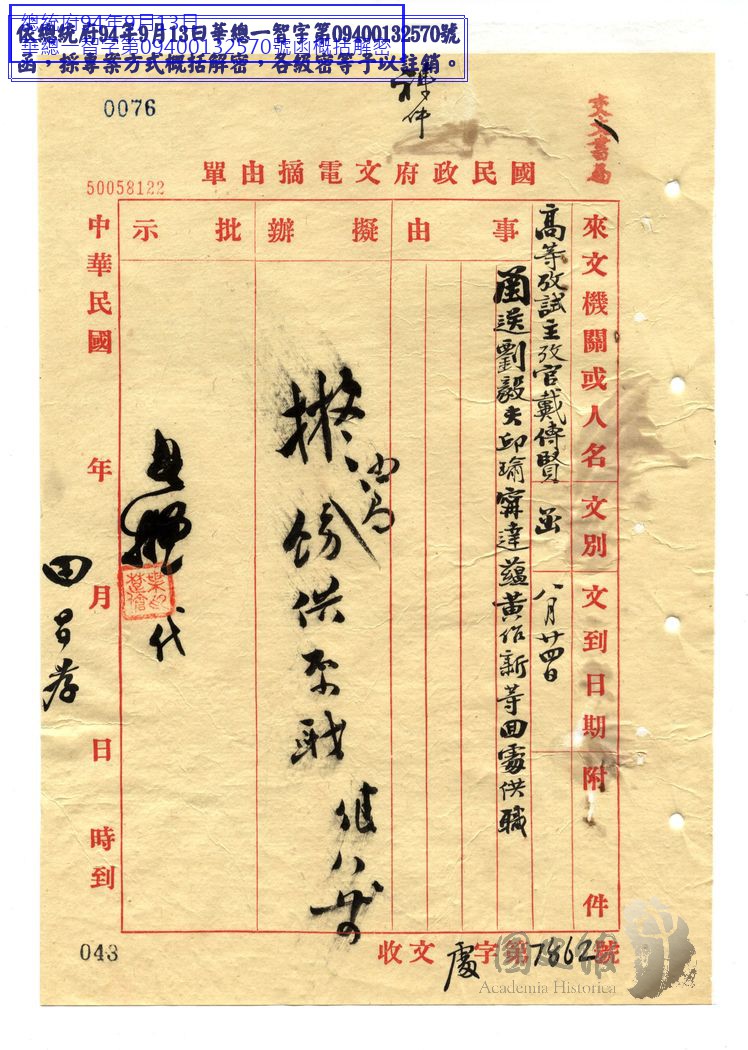 總統府94年9月13日
華總一智字第09400132570號函概括解密
依總統府94年9月13日華總一智字第09400132570號
函，採專案方式概括解密，各級密等予以註銷。
0076
來文書局
50058122
國民政府文電摘由單
來文機關或人名
高等攷試主攷官戴傳賢
文別
函
文到日期
八月廿四日
附件
事由
函送劉毅夫邱瑜甯達蘊黃佰新等回處供職
擬辦
擬飭供原職
批示
代
中華民國 年 月 日 時到
收文處字第7862號
043
國史館
Academia Historica